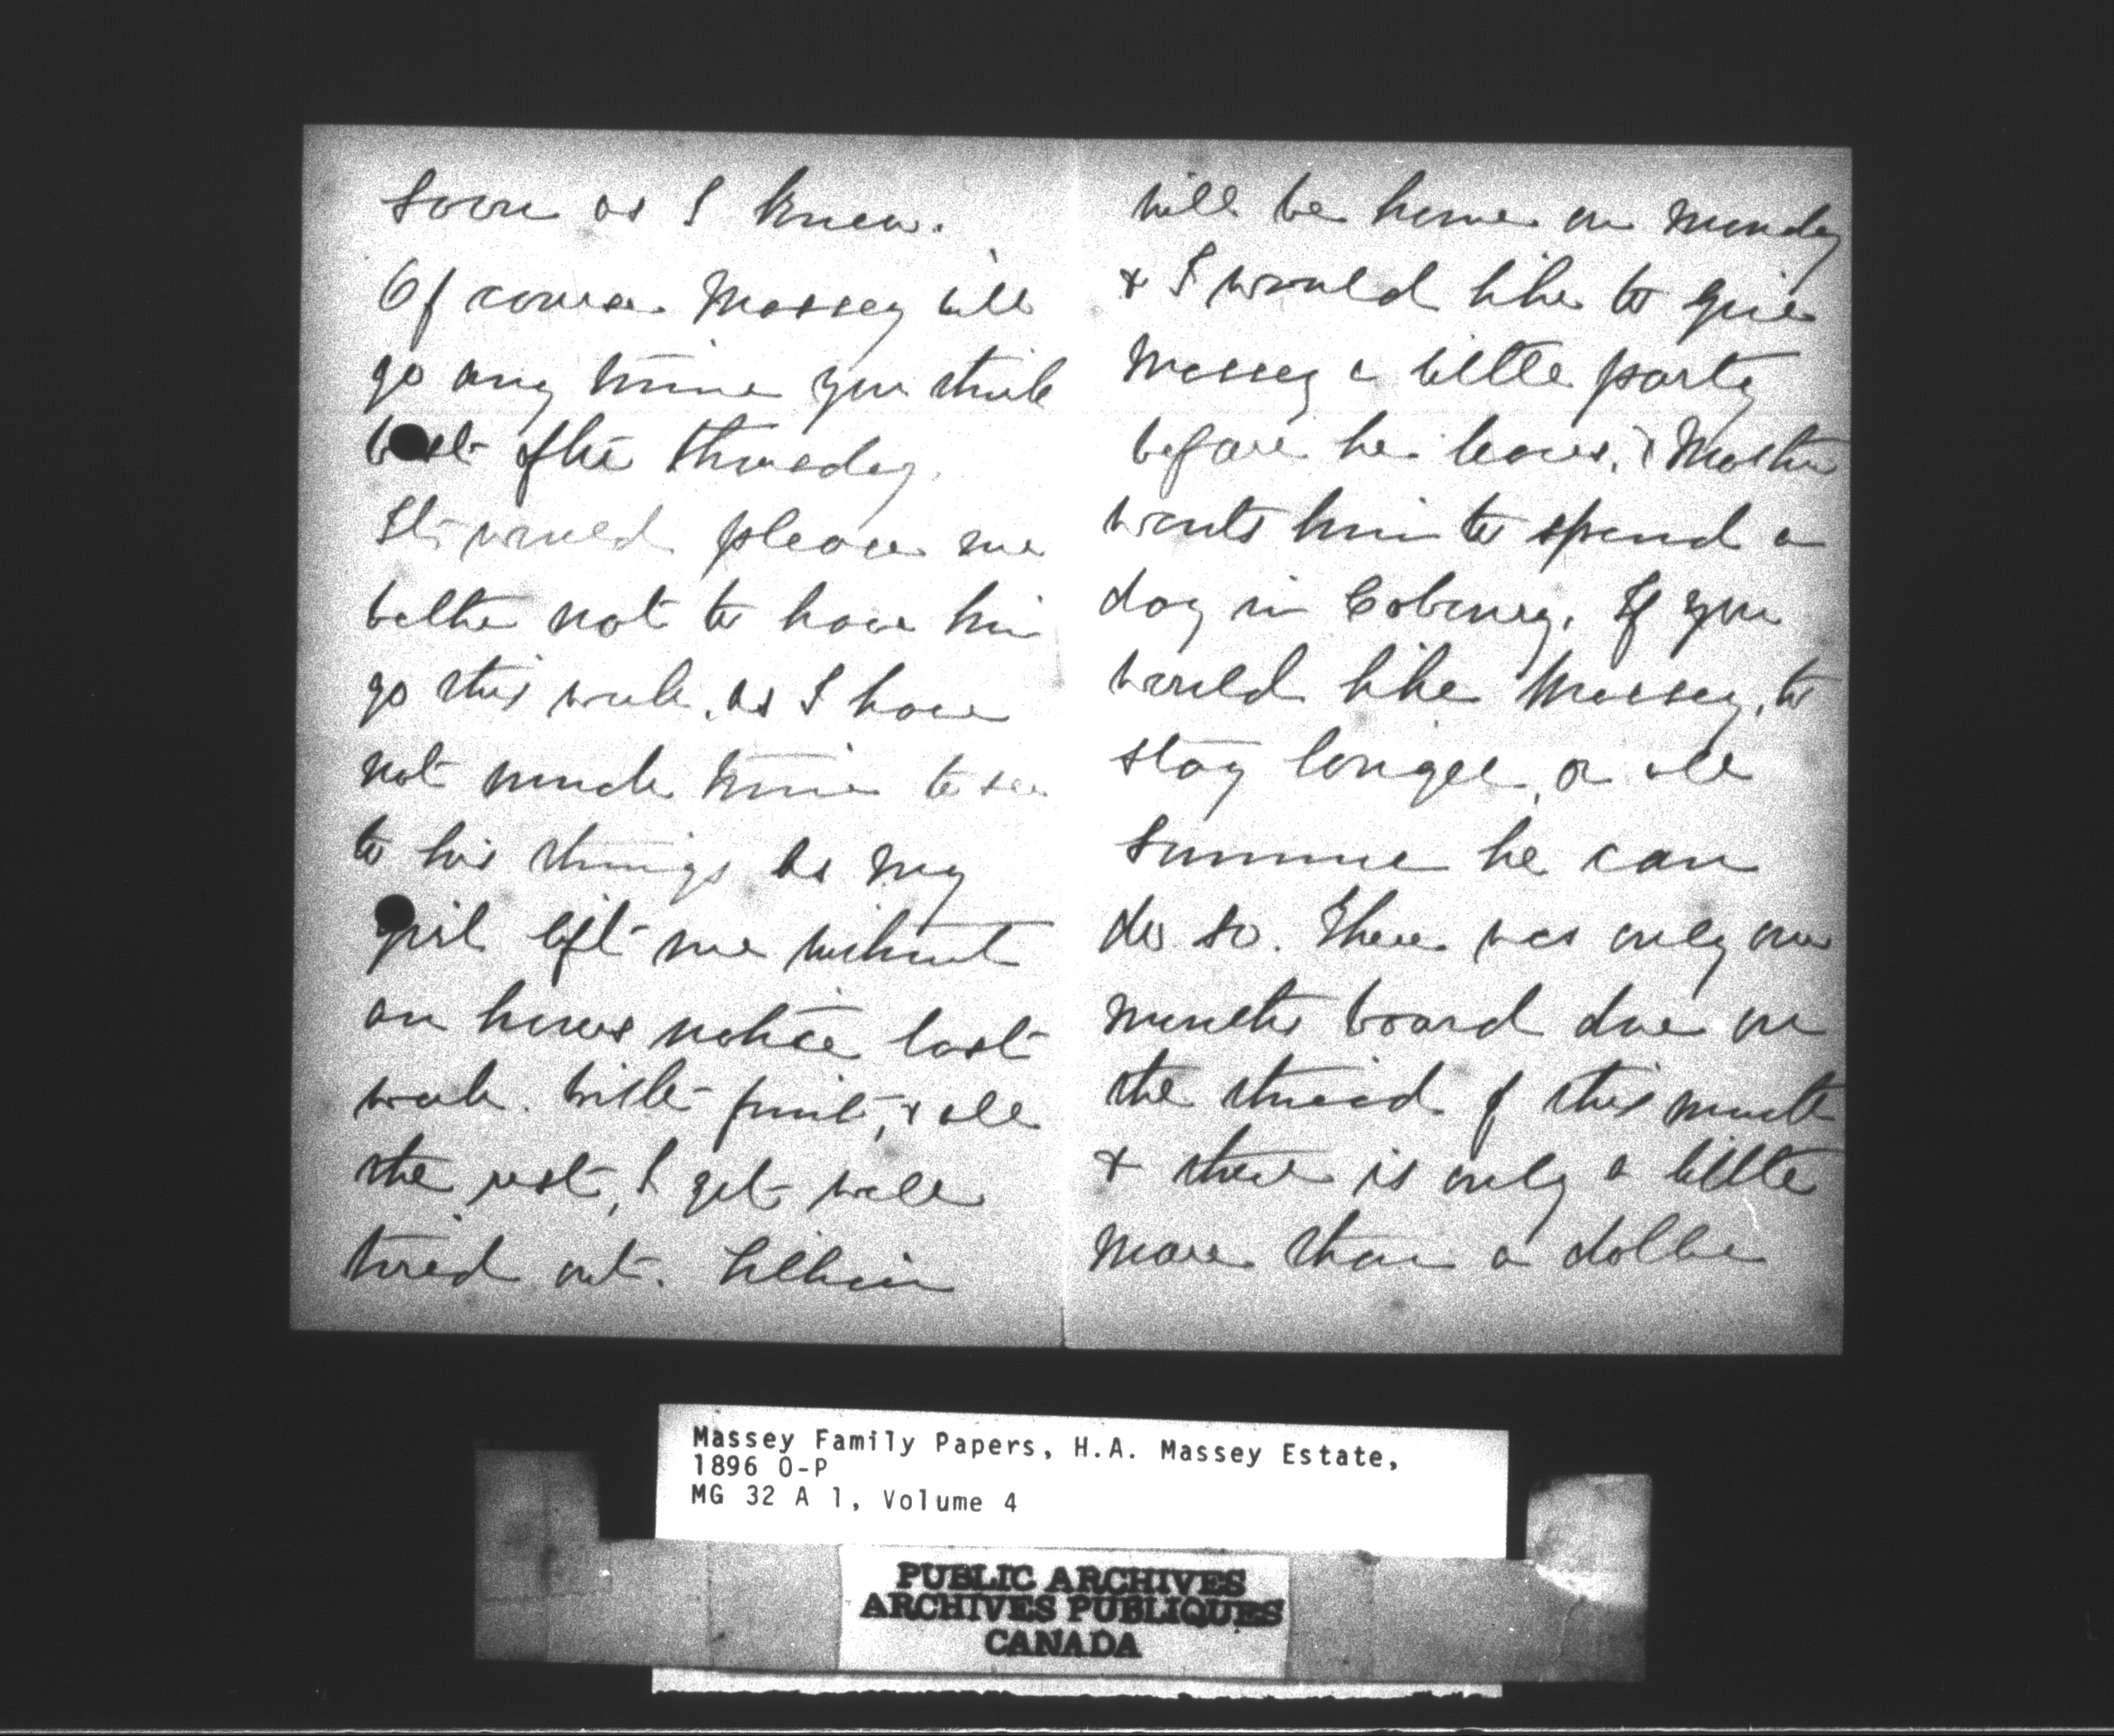 soon as I knew.
Of course Massey will
go any time you think
best after Thursday.
It would please me
better not to have him
go this week, as I have
not much time to see
to his things as my
girl left me without
an hours notice last
week. With fruit, & all
the rest, I get well
tired out. Lillian
will be home on Monday
& I would like to give
Massey a little party
before he leaves. & Mother
wants him to spend a
day in Cobourg. If you
would like Massey, to
stay longer, or all
summer he can
do so. There was only one
months board due on
the third of this month
& there is only a little
more than a dollar
Massey Family Papers, H.A. Massey Estate,
1896 O-P
MG 32 A 1, Volume 4
PUBLIC ARCHIVES
ARCHIVES PUBLIQUES
CANADA